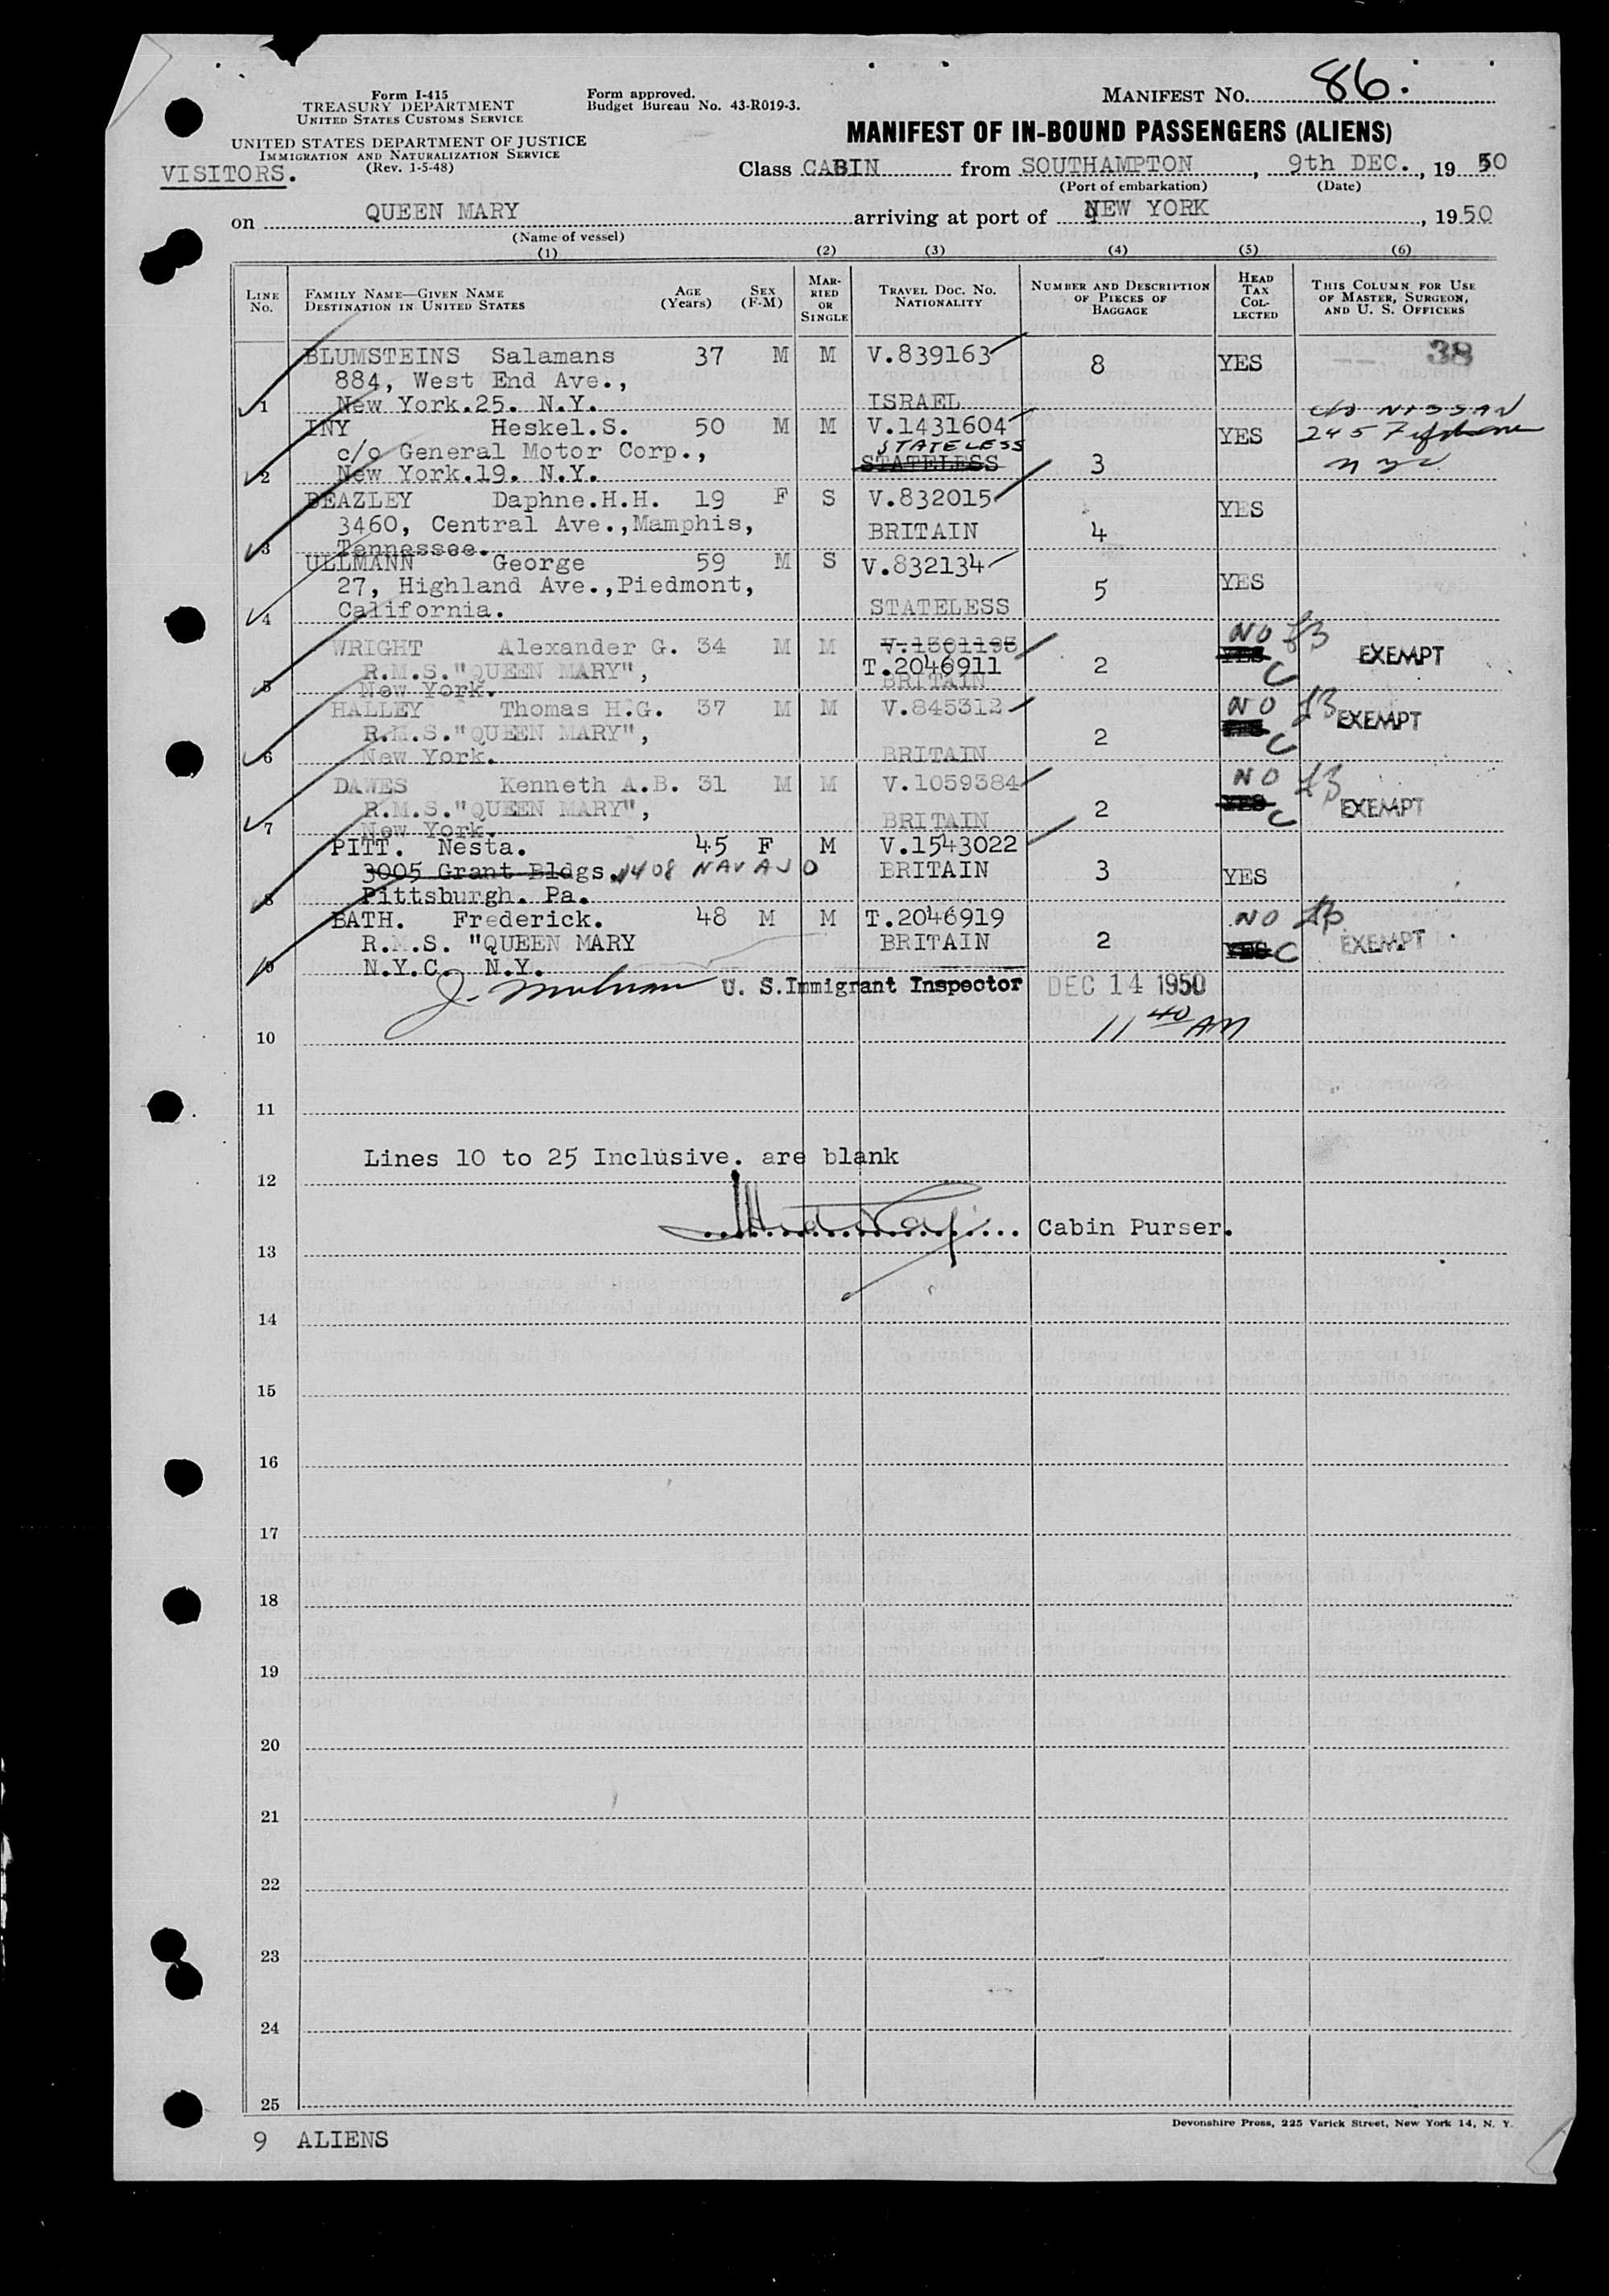 Form I-415
TREASURY DEPARTMENT
UNITED STATES CUSTOMS SERVICE
UNITED STATES DEPARTMENT OF JUSTICE
IMMIGRATION AND NATURALIZATION SERVICE
(Rev. 1-5-48)
VISITORS.
Form approved.
Budget Bureau No. 43-R019-3.
MANIFEST NO. 86.
MANIFEST OF IN-BOUND PASSENGERS (ALIENS)
Class CABIN from SOUTHAMPTON, 9th DEC., 19 50
(Port of embarkation) (Date)
on QUEEN MARY arriving at port of NEW YORK, 1950
(Name of vessel)
(1) (2) (3) (4) (5) (6)
LINE NO. FAMILY NAME—GIVEN NAME DESTINATION IN UNITED STATES AGE (Years) SEX (F-M) MARRIED OR SINGLE TRAVEL DOC. NO. NATIONALITY NUMBER AND DESCRIPTION OF PIECES OF BAGGAGE HEAD TAX COLLECTED THIS COLUMN FOR USE OF MASTER, SURGEON, AND U. S. OFFICERS
BLUMSTEINS Salamans 37 M M V.839163 8 YES 38
884, West End Ave.,
1 New York.25. N.Y. ISRAEL
INY Heskel.S. 50 M M V.1431604 YES c/o NISSAN
c/o General Motor Corp., STATELESS 245 7
2 New York.19. N.Y. STATELESS 3 NYC
BEAZLEY Daphne.H.H. 19 F S V.832015 YES
3460, Central Ave.,Mamphis, BRITAIN 4
3 Tennessee.
ULLMANN George 59 M S V.832134 YES
27, Highland Ave.,Piedmont, 5
4 California. STATELESS
WRIGHT Alexander G. 34 M M V.1361193 NO
R.M.S."QUEEN MARY", T.2046911 2 YES C EXEMPT
5 New York. BRITAIN
HALLEY Thomas H.G. 37 M M V.845312 NO
R.M.S."QUEEN MARY", 2 YES C EXEMPT
6 New York. BRITAIN
DAWES Kenneth A.B. 31 M M V.1059384 NO
R.M.S."QUEEN MARY", 2 YES C EXEMPT
7 New York. BRITAIN
PITT. Nesta. 45 F M V.1543022
3005 Grant Bldgs. 1408 NAVAJO BRITAIN 3 YES
8 Pittsburgh. Pa.
BATH. Frederick. 48 M M T.2046919 NO
R.M.S. "QUEEN MARY BRITAIN 2 YES C EXEMPT
9 N.Y.C. N.Y.
U. S.Immigrant Inspector DEC 14 1950
11 40 AM
10
11
Lines 10 to 25 Inclusive. are blank
12
Cabin Purser.
13
14
15
16
17
18
19
20
21
22
23
24
25
Devonshire Press, 225 Varick Street, New York 14, N. Y.
9 ALIENS